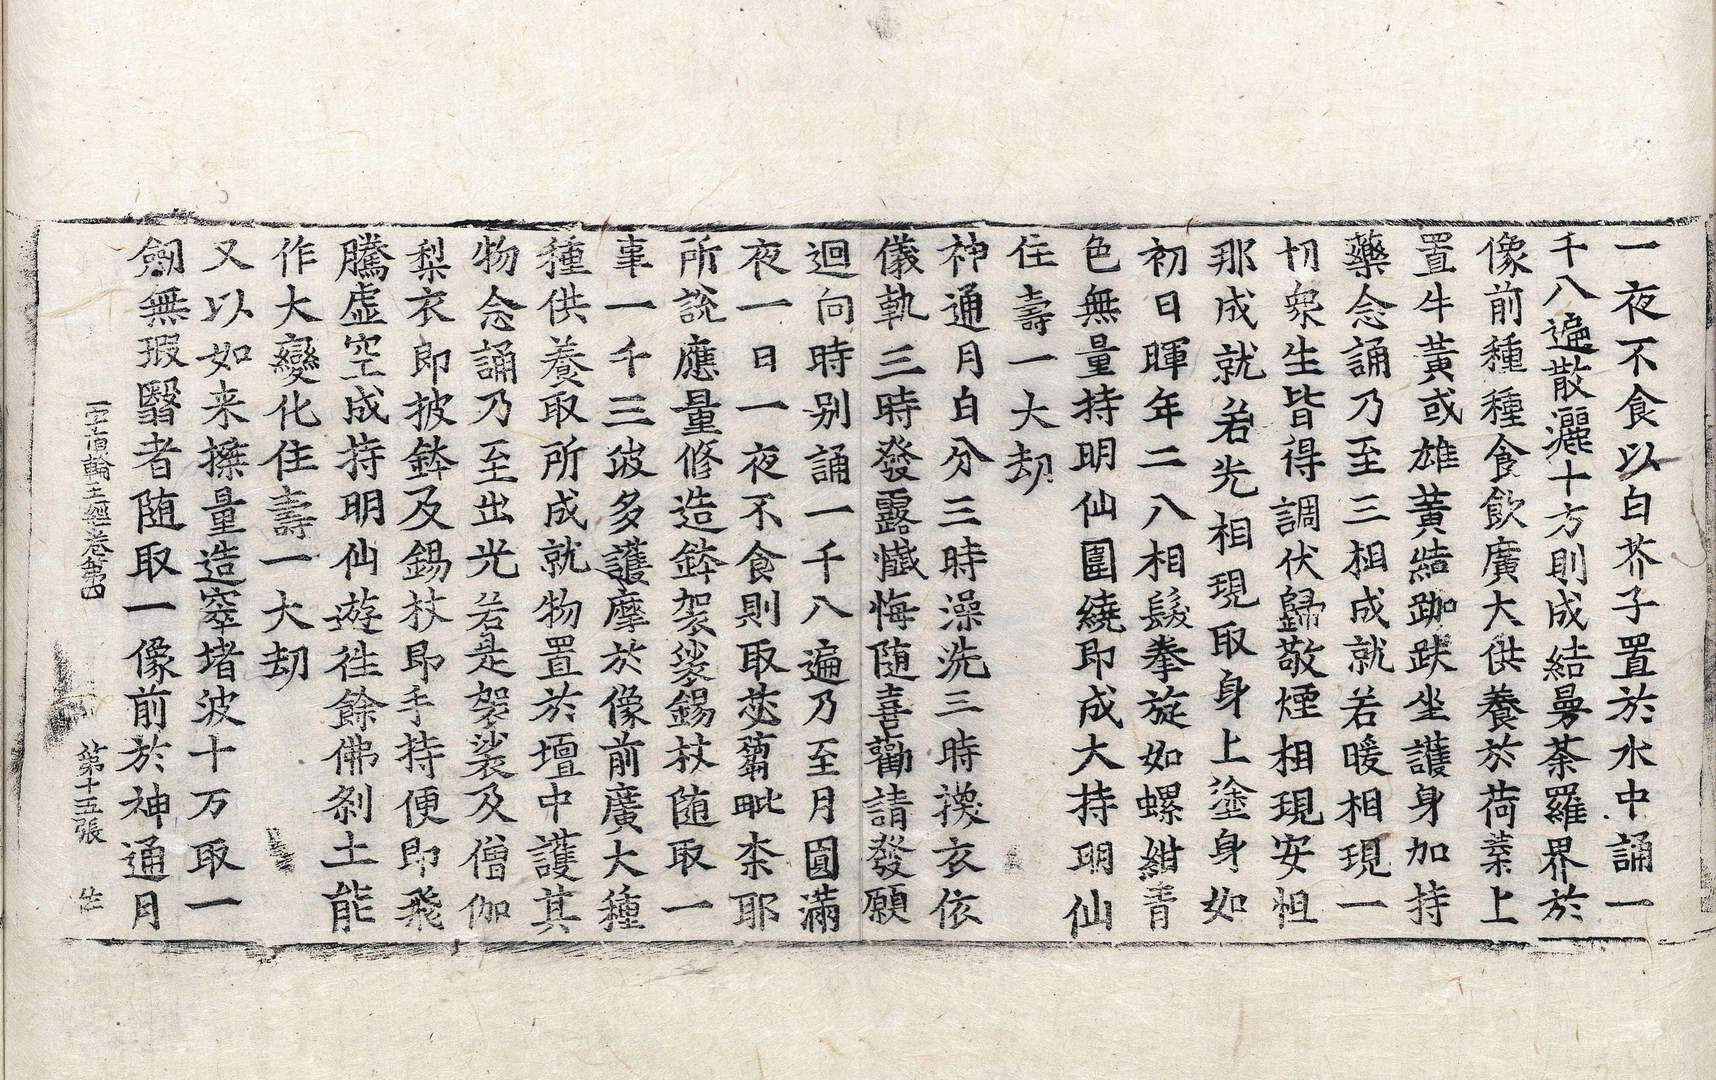 一夜不食以白芥子置於水中誦一
千八遍散灑十方則成結曼荼羅界於
像前種種食飲廣大供養於荷葉上
置牛黃或雄黃結跏趺坐護身加持
藥念誦乃至三相成就若暖相現一
切衆生皆得調伏歸敬煙相現安怛
那成就若光相現取身上塗身如
初日暉年二八相髮拳旋如螺紺青
色無量持明仙圍繞即成大持明仙
住壽一大劫
神通月白分三時澡洗三時換衣依
儀軌三時發露懺悔随喜勸請發願
迴向時别誦一千八遍乃至月圓滿
夜一日一夜不食則取苾蒭毗柰耶
所說應量修造鉢袈裟錫杖随取一
事一千三波多護摩於像前廣大種
種供養取所成就物置於壇中護其
物念誦乃至出光若是袈裟及僧伽
梨衣即披鉢及錫杖即手持便即飛
騰虛空成持明仙遊往餘佛刹土能
作大變化住壽一大劫
又以如来搩量造窣堵波十万取一
劒無瑕翳者随取一像前於神通月
一字頂輪王經卷第四 第十五張 㔫